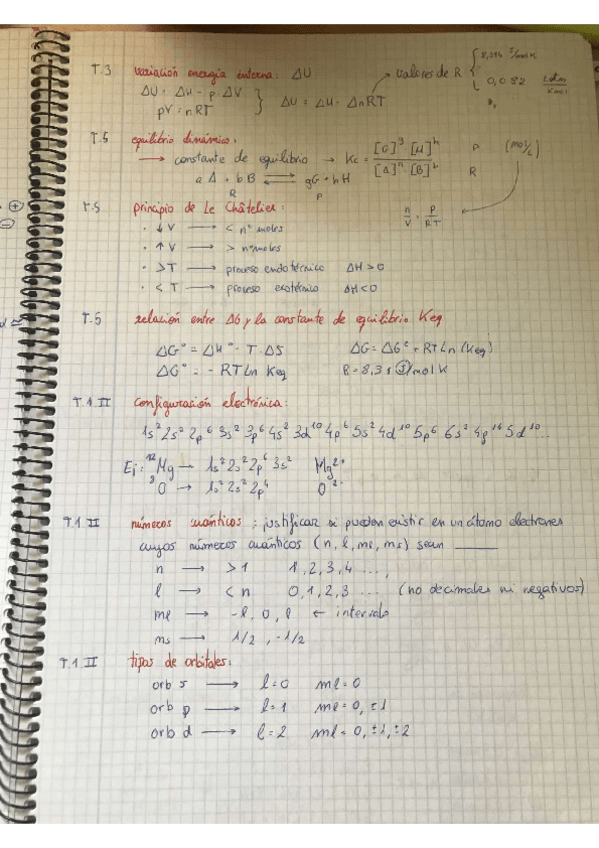 T.3 variación energía interna: ΔU
ΔU = ΔH - p · ΔV
pV = nRT
ΔU = ΔH - ΔnRT
valores de R
8,314 J/mol K
0,082 L atm / K mol
T.5 equilibrio dinámico:
→ constante de equilibrio → Kc = [G]^g [H]^h / [A]^a [B]^b P R (mol/L)
a A + b B ⇌ gG + hH
R P
T.5 principio de Le Châtelier: n/V = P/RT
· ↓ V → < nº moles
· ↑ V → > nº moles
· > T → proceso endotérmico ΔH > 0
· < T → proceso exotérmico ΔH < 0
T.5 relación entre ΔG y la constante de equilibrio Keq
ΔG° = ΔH° - T · ΔS ΔG = ΔG° + RT Ln (Keq)
ΔG° = - RT Ln Keq R = 8,31 J/mol K
T.1 II configuración electrónica:
1s² 2s² 2p⁶ 3s² 3p⁶ 4s² 3d¹⁰ 4p⁶ 5s² 4d¹⁰ 5p⁶ 6s² 4f¹⁴ 5d¹⁰ ...
Ej: ¹²Mg → 1s² 2s² 2p⁶ 3s² Mg²⁺
O → 1s² 2s² 2p⁴ O²⁻
T.1 II números cuánticos: justificar si pueden existir en un átomo electrones
cuyos números cuánticos (n, l, ml, ms) sean ______
n → > 1 1, 2, 3, 4 ...,
l → < n 0, 1, 2, 3 ... (no decimales ni negativos)
ml → -l, 0, l ← intervalo
ms → 1/2, -1/2
T.1 II tipos de orbitales:
orb s → l = 0 ml = 0
orb p → l = 1 ml = 0, ±1
orb d → l = 2 ml = 0, ±1, ±2